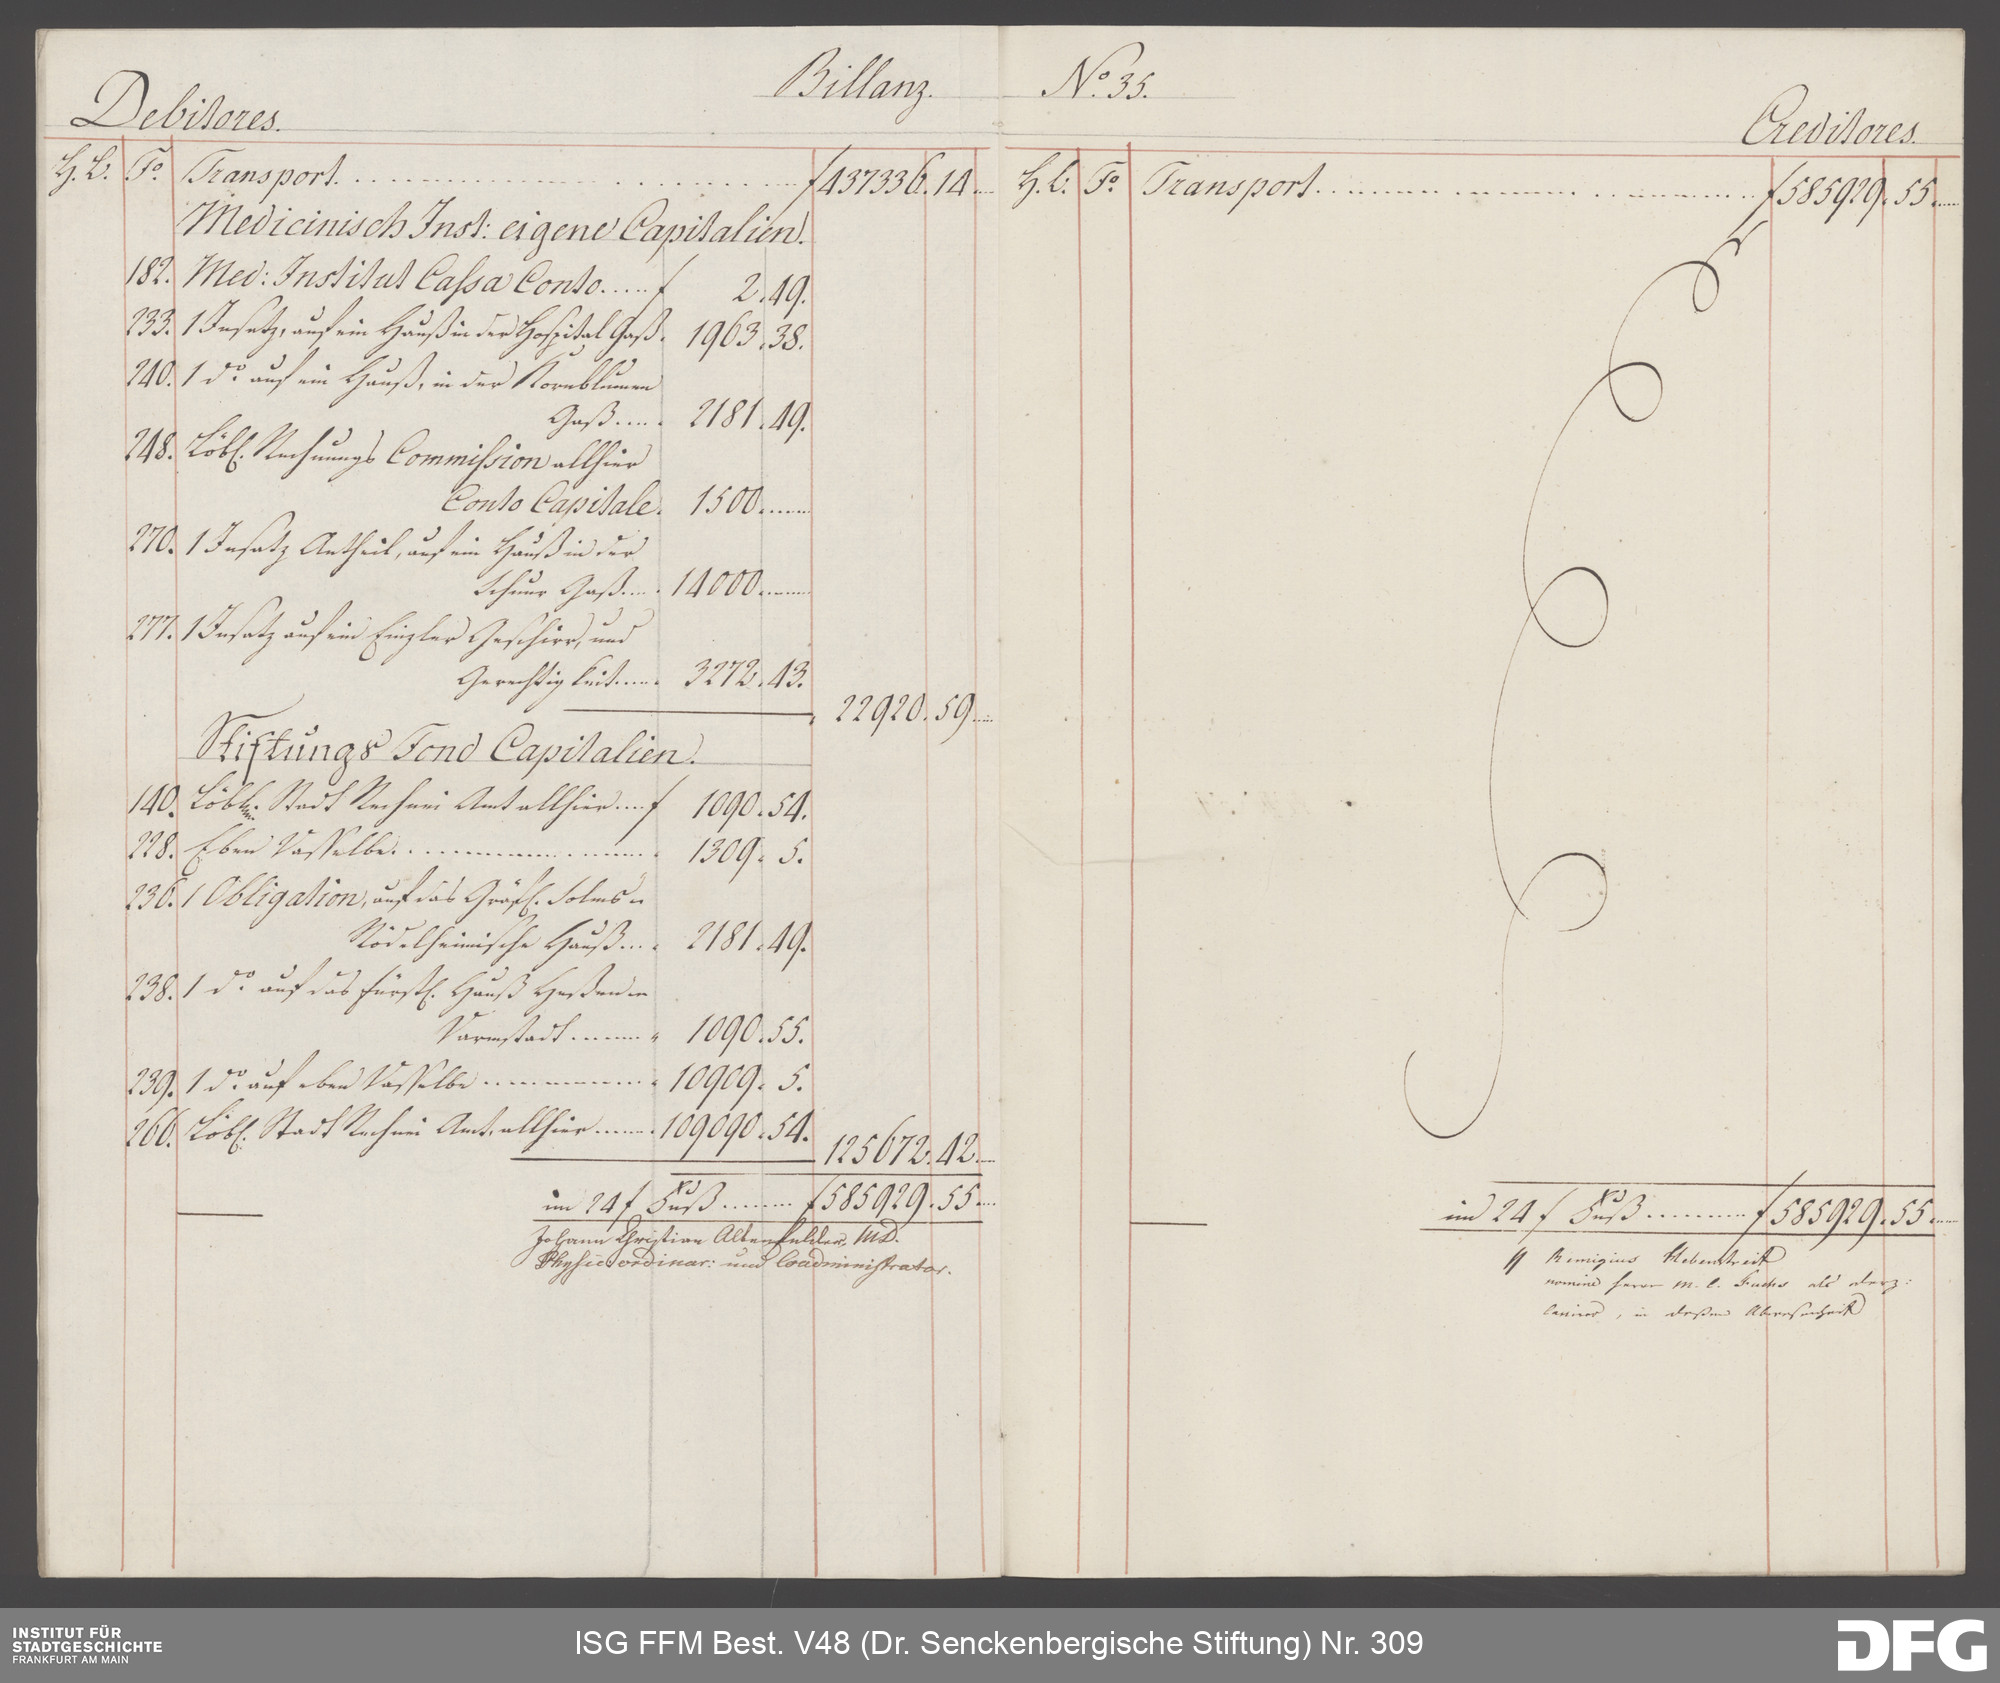 Billanz. No. 35.
Debitores.
H. B. Fo. Transport. . . . . . . . . f 437336. 14. ...
Medicinisch Inst: eigene Capitalien.
182. Med: Institut Cassa Conto. .... f 2. 49.
233. 1 Insatz, auf ein Hauß in der Hospital Gaß. 1963. 38.
240. 1 do. auf ein Hauß, in der Kornblumen
Gaß .... 2181. 49.
248. Löbl. Rechnungs Commission allhier
Conto Capitale. 1500. ......
270. 1 Insatz Antheil, auf ein Hauß in der
Schnur Gaß.... 14000. ......
277. 1 Insatz auf ein Einzler Geschirr, und
Gerechtigkeit..... 3272. 43.
22920. 59. ...
Stiftungs Fond Capitalien.
140. Löbl. Stadt Rechnei Amt allhier .... f 1090. 54.
228. Eben dasselbe. . . . . . . . 1309. 5.
236. 1 Obligation, auf das Gräfl. Solms
Rödelheimische Hauß ... 2181. 49.
238. 1 do. auf das fürstl. Hauß Heßen
Darmstadt ........ 1090. 55.
239. 1 do. auf eben dasselbe .......... 10909. 5.
266. Löbl. Stadt Rechnei Amt, allhier ...... 109090. 54.
125672. 42. ...
im 24 f Fuß ........ f 585929. 55. ...
Johann Christian Altenfelder MD.
Physic: ordinar: und Coadministrator.
Creditores.
H. B. Fo. Transport. . . . . . . . . f 585929. 55. ...
im 24 f Fuß ......... f 585929. 55. ...
Remigius Hebenstreit
nomine herrn M. C. Fuchs als derz:
in deßen Abwesenheit
INSTITUT FÜR
STADTGESCHICHTE
FRANKFURT AM MAIN
ISG FFM Best. V48 (Dr. Senckenbergische Stiftung) Nr. 309
DFG